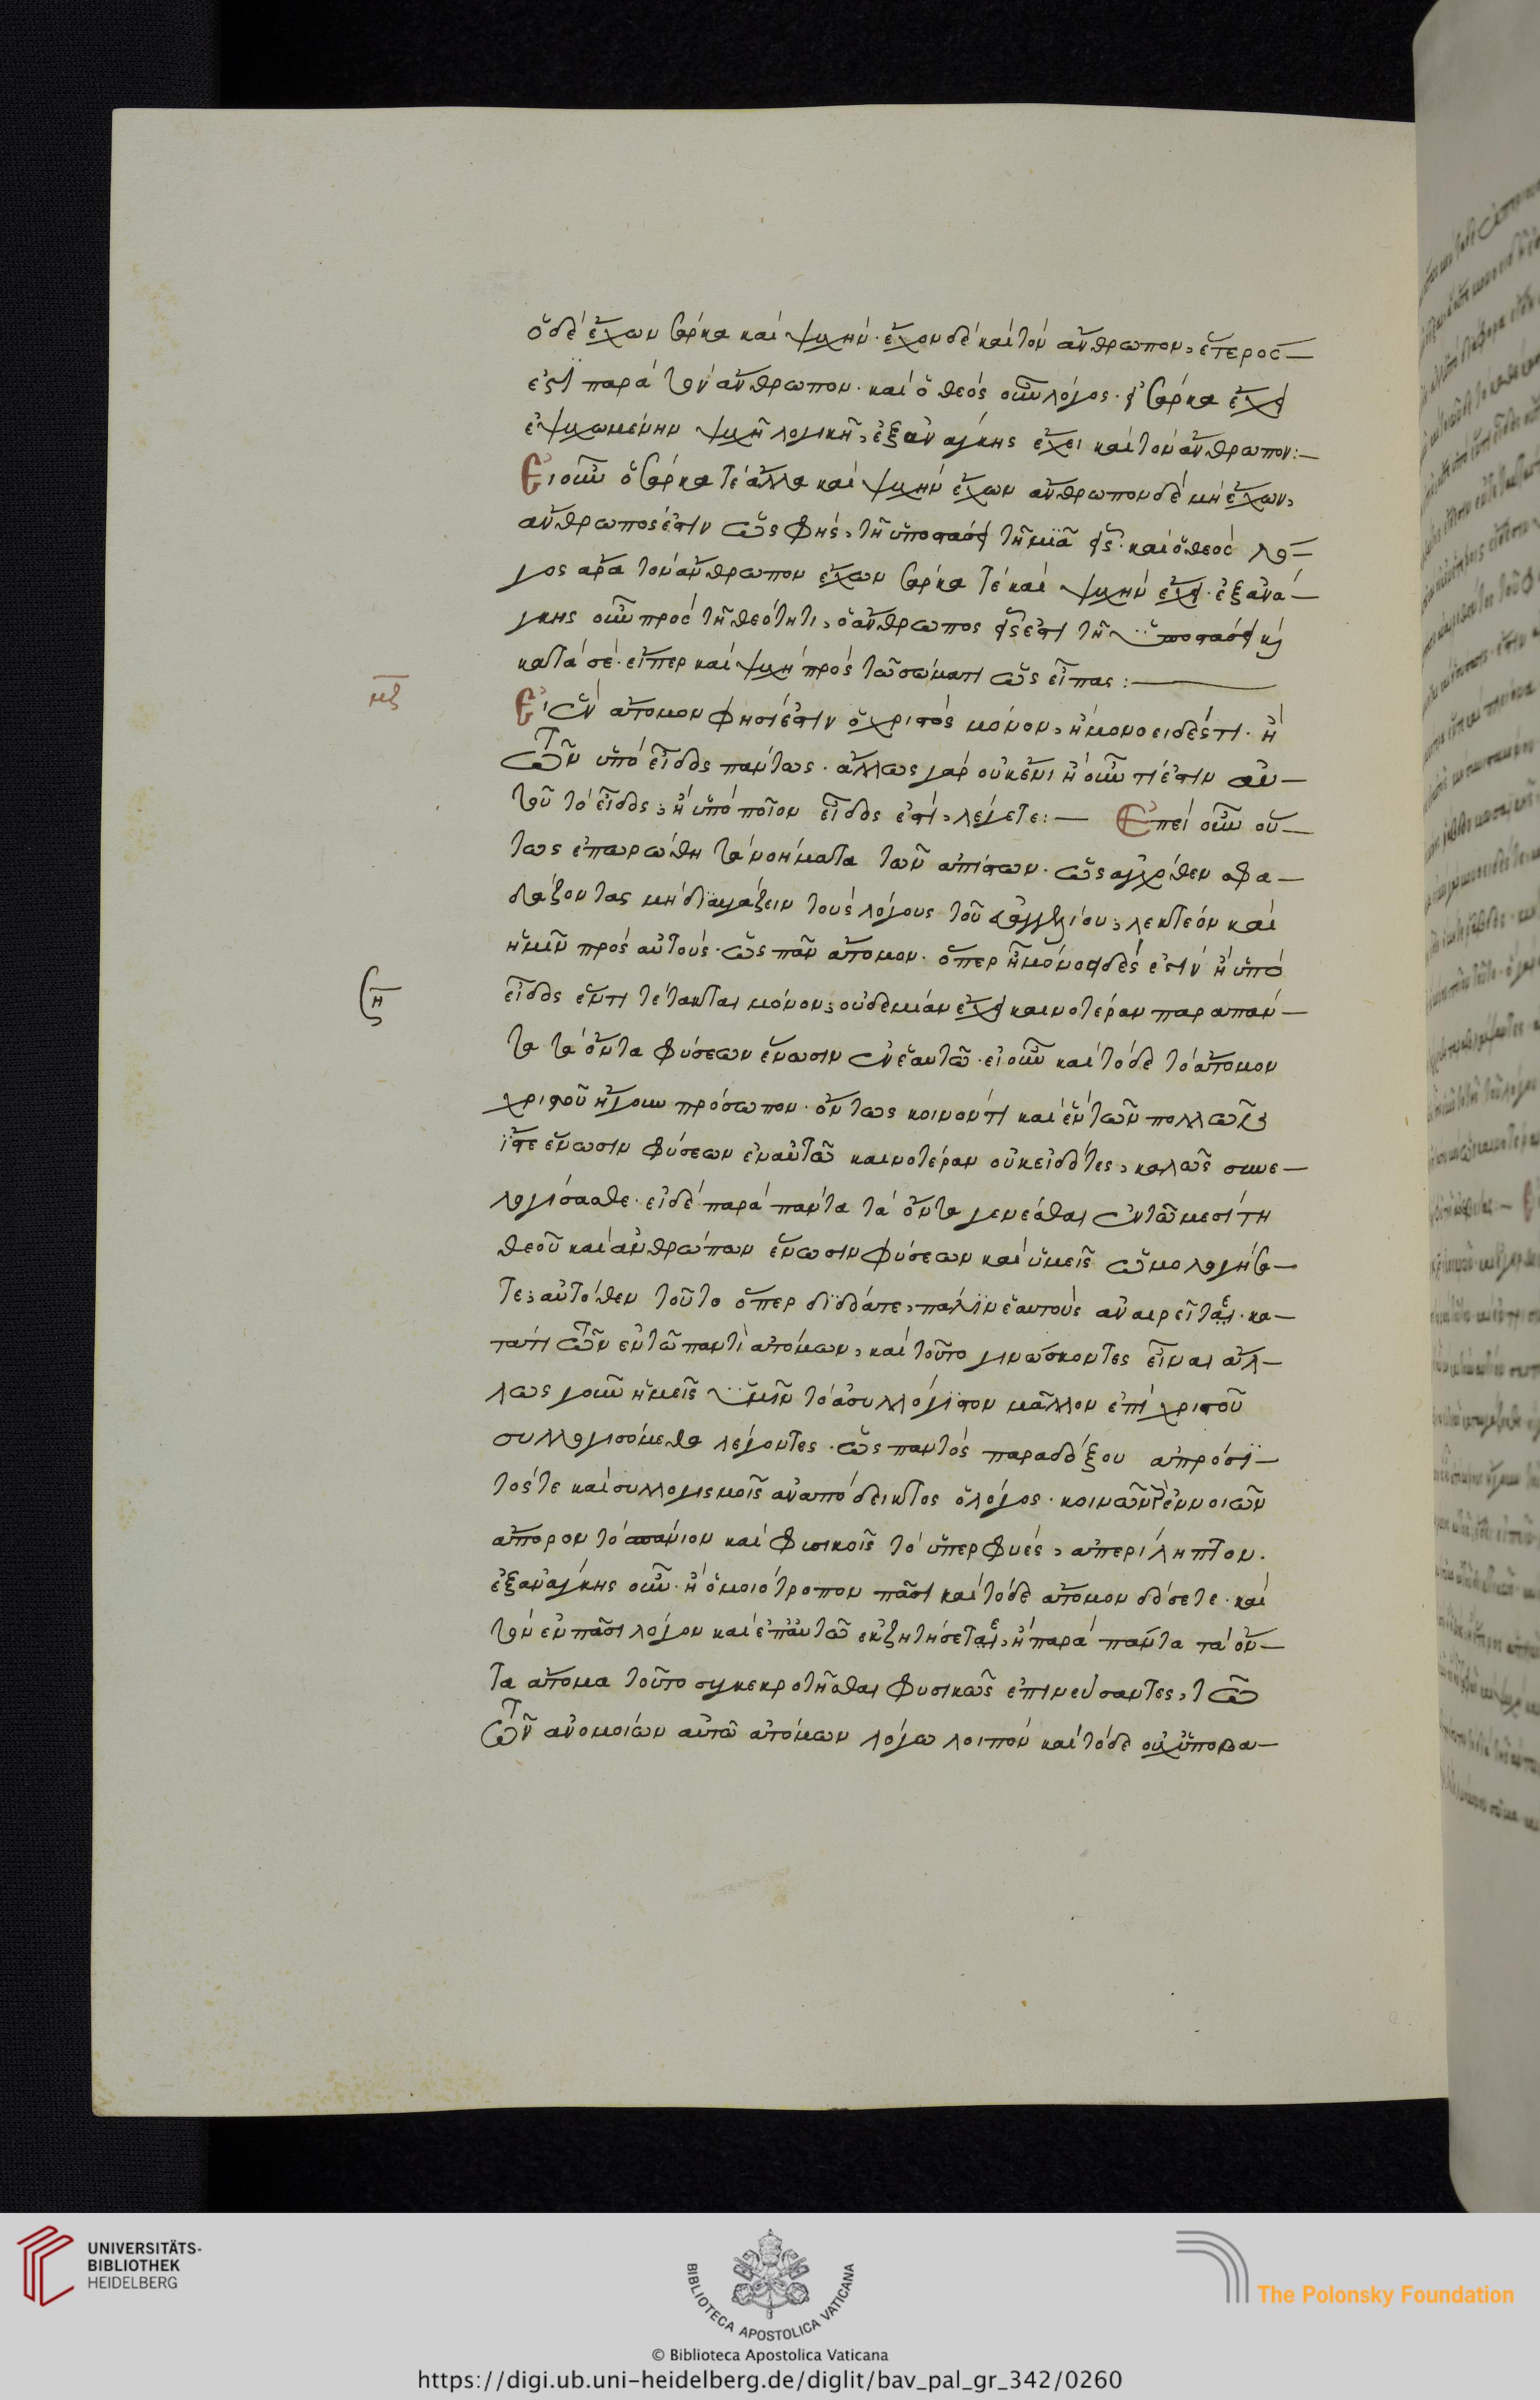 ὁ δὲ ἔχων σάρκα καὶ ψυχήν· ἔχων δὲ καὶ τὸν ἄνθρωπον, ἕτερός
ἐστι παρὰ τὸν ἄνθρωπον· καὶ ὁ θεὸς οὖν λόγος· εἰ σάρκα ἔχει
ἐψυχωμένην ψυχῆ λογικῆ, ἐξ ἀνάγκης ἔχει καὶ τὸν ἄνθρωπον:—
Εἰ οὖν ὁ σάρκα τὲ ἅμα καὶ ψυχὴν ἔχων ἄνθρωπον δὲ μὴ ἔχων,
ἄνθρωπός ἐστιν ὡς φής, τῆ ὑποστάσει τῆ μιᾶ εἷς· καὶ ὁ θεὸς λό—
γος ἄρα τὸν ἄνθρωπον ἔχων σάρκα τὲ καὶ ψυχὴν ἔχει· ἐξ ἀνά—
γκης οὖν πρὸς τῆ θεότητι, ὁ ἄνθρωπος εἷς ἐστι τῆ ὑποστάσει καὶ
κατὰ σέ· εἴπερ καὶ ψυχὴ πρὸς τῶ σώματι ὡς εἶπας:—
μζ
Εἰ ἓν ἄτομον φησὶ ἐστιν ὁ χριστὸς μόνον, ἢ μονοειδές τι· ἢ
τῶν ὑπὸ εἶδος πάντως· ἄλλως γὰρ οὐκ ἔνι ἢ οὖν τί ἐστιν αὐ—
τοῦ τὸ εἶδος, ἢ ὑπὸ ποῖον εἶδος ἐστί, λέγετε:— Ἐπεὶ οὖν οὕ—
τως ἐπωρώθη τὰ νοήματα τῶν ἀπίστων· ὡς
μὴ τοὺς λόγους τοῦ λεκτέον καὶ
ἡμῖν πρὸς αὐτούς· ὡς πᾶν ἄτομον· ὅπερ ἢ μονοειδές ἐστιν ἢ ὑπὸ
ϛη
εἶδος ἕν τι τέτακται μόνον, οὐδεμίαν ἔχει καινοτέραν παρὰ πάν—
τα τὰ ὄντα φύσεων ἕνωσιν ἐν ἑαυτῶ· εἰ οὖν καὶ τόδε τὸ ἄτομον
χριστοῦ ἤγουν πρόσωπον· ὄντως κοινόν τι καὶ ἓν τῶν πολλῶν
ἴστε ἕνωσιν φύσεων ἐν αὐτῶ καινοτέραν οὐκ εἰδότες, καλῶς συνε—
λογίσασθε· εἰ δὲ παρὰ πάντα τὰ ὄντα γενέσθαι ἐν τῶ μεσίτη
θεοῦ καὶ ἀνθρώπων ἕνωσιν φύσεων καὶ ὑμεῖς ὡμολογήσα—
τε, αὐτόθεν τοῦτο ὅπερ διδόατε, πάλιν ἑαυτοὺς ἀναιρεῖται· κα—
τά τι τῶν ἐν τῶ παντὶ ἀτόμων, καὶ τοῦτο γινώσκοντες εἶναι ἄλ—
λως γοῦν ἡμεῖς ὑμῖν τὸ ἀσυλλόγιστον μᾶλλον ἐπὶ χριστοῦ
συλλογισόμεθα λέγοντες· ὡς παντὸς παραδόξου ἀπρόσι—
τός τε καὶ συλλογισμοῖς ἀναπόδεικτος ὁ λόγος· κοινῶν τε ἐννοιῶν
ἄπορον τὸ σπάνιον καὶ φυσικοῖς τὸ ὑπερφυές, ἀπερίληπτον.
ἐξ ἀνάγκης οὖν· ἢ ὁμοιότροπον πᾶσι καὶ τόδε ἄτομον δόσετε· καὶ
τὸν ἐν πᾶσι λόγον καὶ ἐπ' αὐτῶ ἐκζητήσεται, ἢ παρὰ πάντα τὰ ὄν—
τα ἄτομα τοῦτο συγκεκροτῆσθαι φυσικῶς ἐπινεύσαντες, τῶ
τῶν ἀνομοίων αὐτῶ ἀτόμων λόγω λοιπὸν καὶ τόδε οὐχ ὑποβα—
UNIVERSITÄTS-
BIBLIOTHEK
HEIDELBERG
BIBLIOTECA APOSTOLICA VATICANA
The Polonsky Foundation
© Biblioteca Apostolica Vaticana
https://digi.ub.uni-heidelberg.de/diglit/bav_pal_gr_342/0260